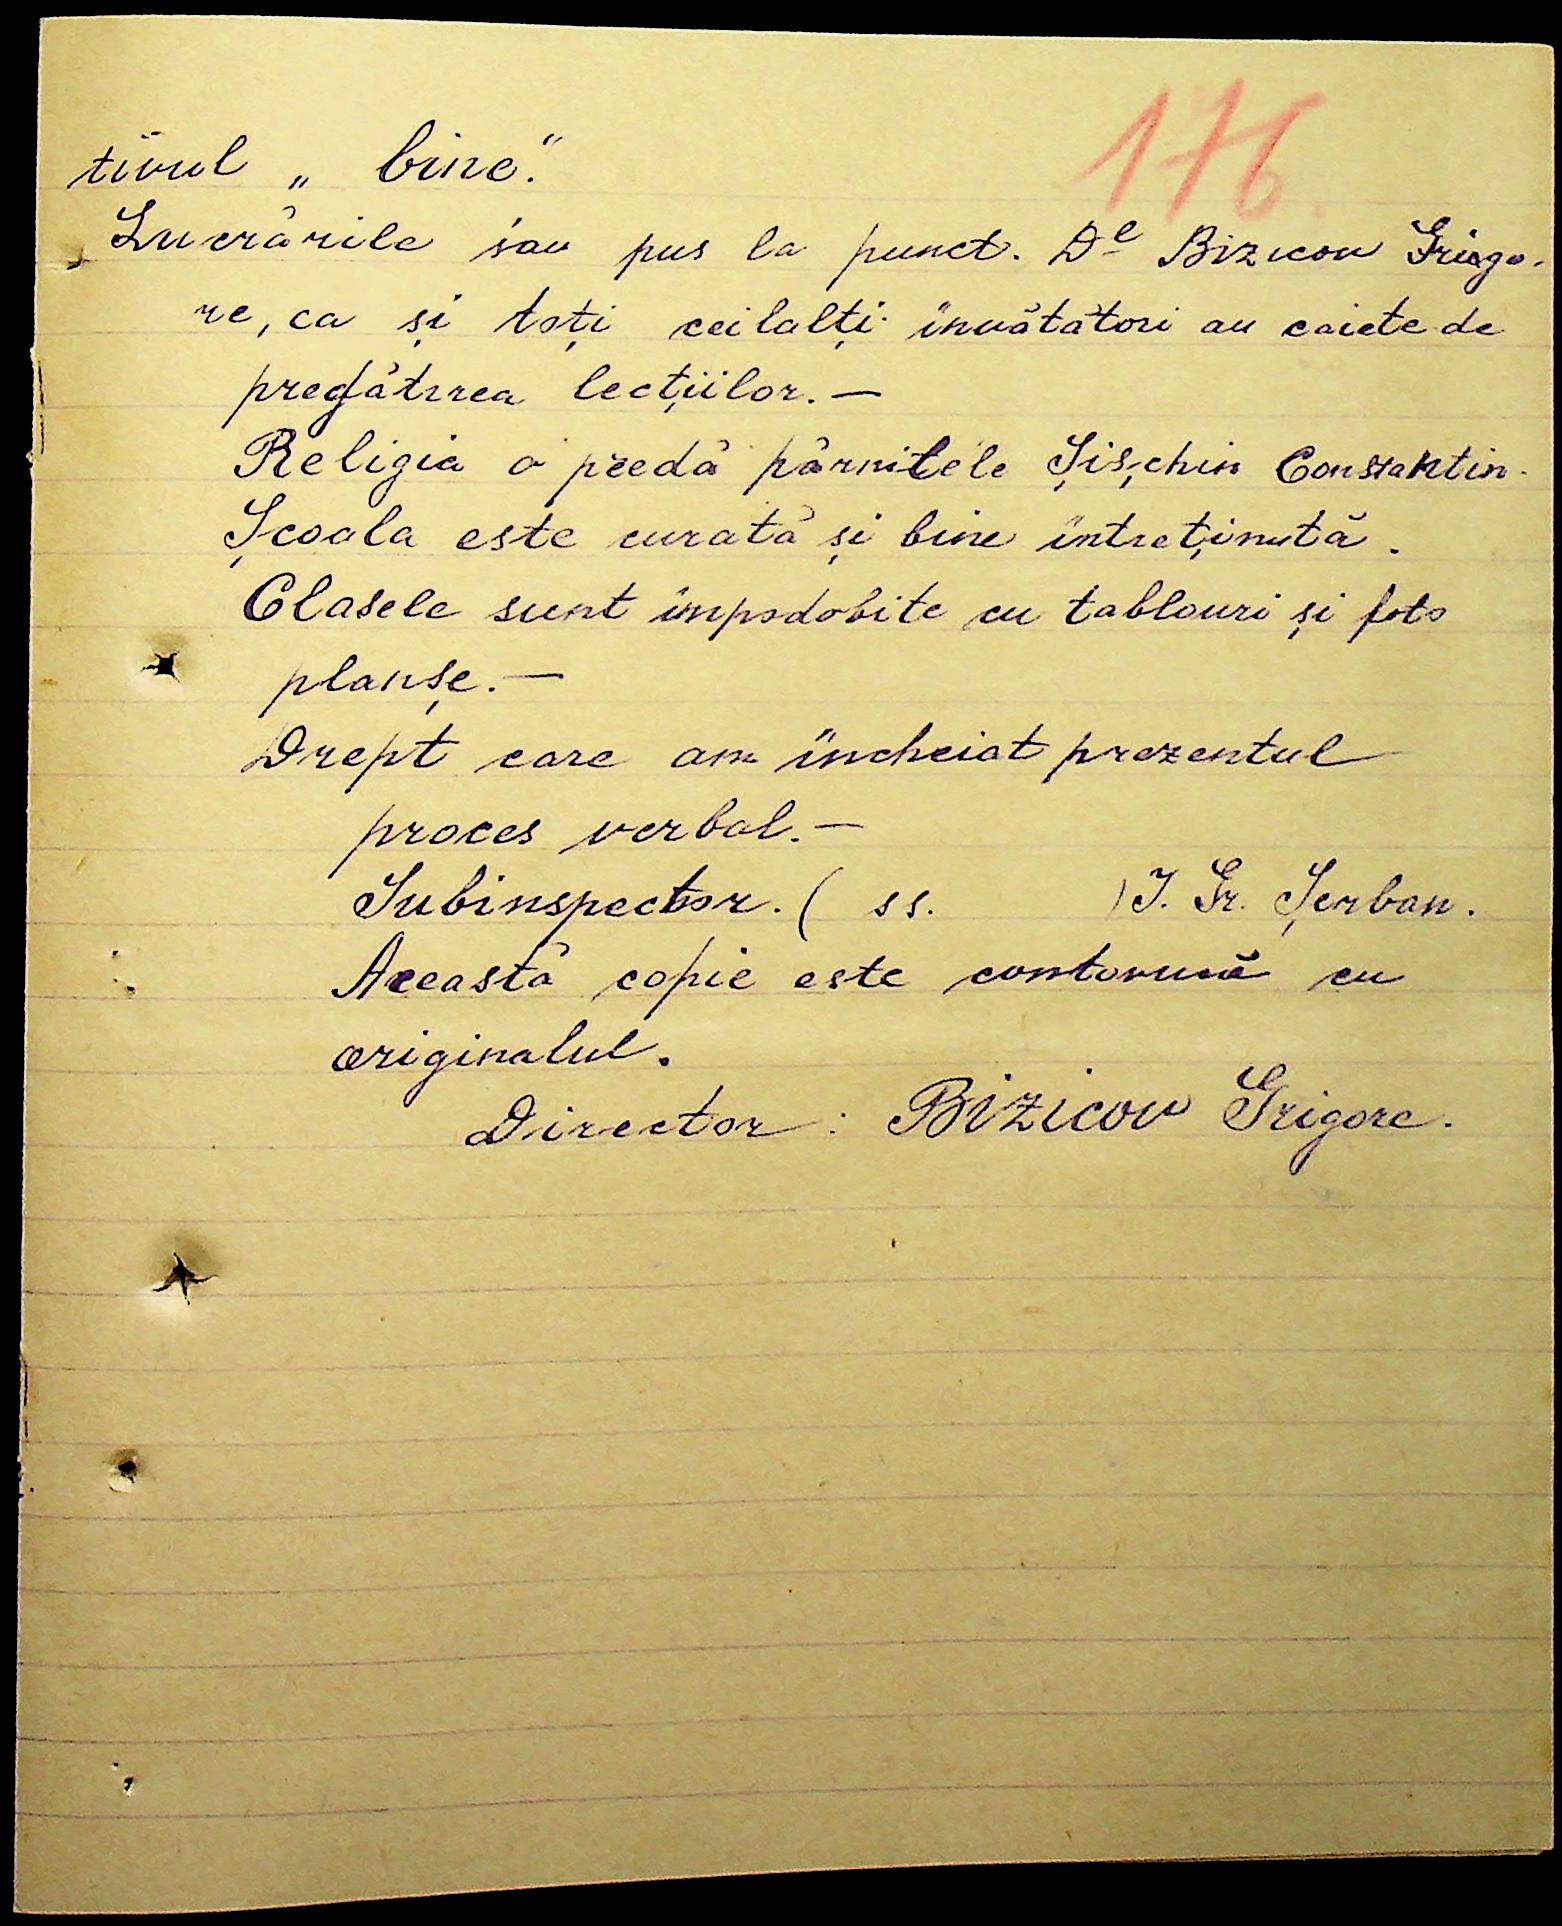 176
tivul „ bine".
Lucrările s'au pus la punct. Dl Bizicov Griogo-
re, ca și toți ceilalți învătători au caiete de
pregătirea lecțiilor. —
Religia o predă părnitele Șișchin Constantin.
Școala este curată și bine intreținută.
Clasele sunt înpodobite cu tablouri și foto
planșe. —
Drept care am încheiat prezentul
proces verbal. —
Subinspector. ( ss. ) I. Gr. Șerban.
Această copie este contormă cu
originalul.
Director : Bizicov Grigore.